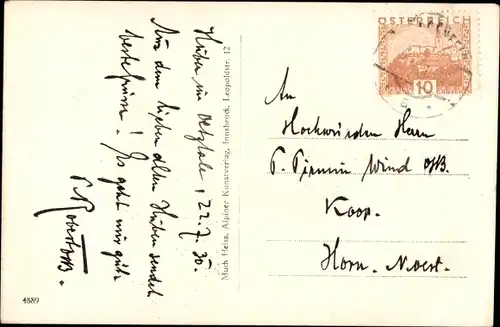 Huben im Oetztale, 22.7.30.
Aus dem lieben alten Huben sendet
beste Grüsse! Es geht mir gut.
P. Robert OSB.
Much Heiss, Alpiner Kunstverlag, Innsbruck, Leopoldstr. 12
4889
ÖSTERREICH
10
An
Hochwürden Herrn
P. Pirmin Wind OSB.
Koop.
Horn. N.oest.